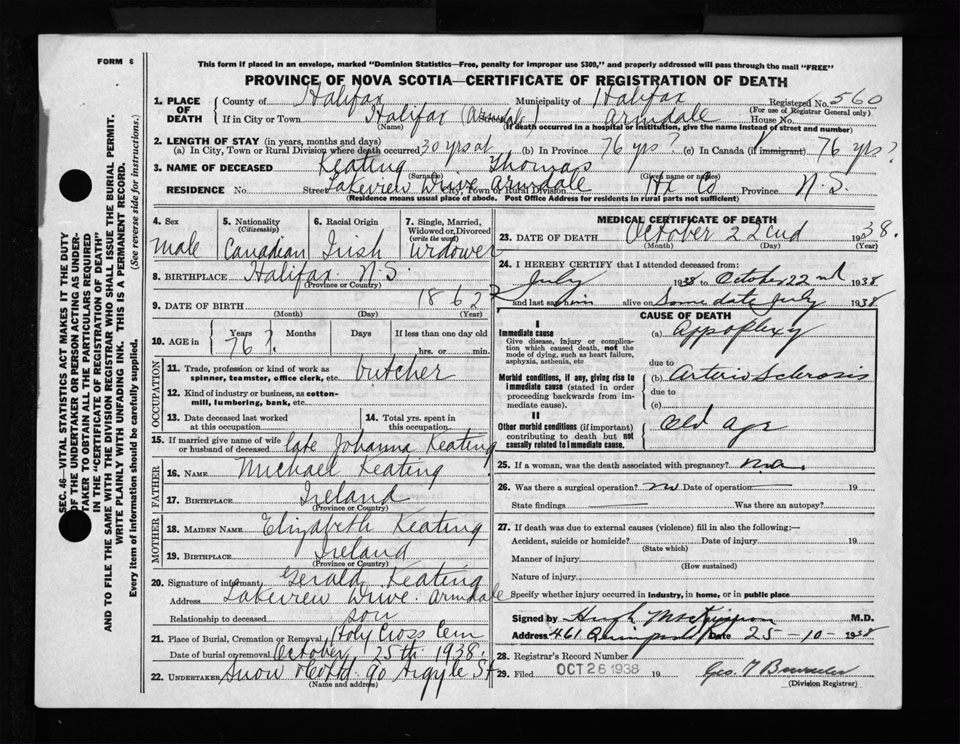 FORM 6
This form if placed in an envelope, marked "Dominion Statistics—Free, penalty for improper use $300," and properly addressed will pass through the mail "FREE"
PROVINCE OF NOVA SCOTIA—CERTIFICATE OF REGISTRATION OF DEATH
1. PLACE OF DEATH
County of Halifax Municipality of Halifax Registered No. 560
(For use of Registrar General only)
If in City or Town Halifax (Armdale) Armdale House No.
(Name) (If death occurred in a hospital or institution, give the name instead of street and number)
2. LENGTH OF STAY (in years, months and days)
(a) In City, Town or Rural Division where death occurred 30 yrs at (b) In Province 76 yrs? (c) In Canada (if immigrant) 76 yrs?
3. NAME OF DECEASED Keating Thomas
(Surname) (Given name or names)
RESIDENCE No. Street Lakeview Drive City, Town or Rural Division Armdale Hx Co Province N.S.
(Residence means usual place of abode. Post Office Address for residents in rural parts not sufficient)
4. Sex male
5. Nationality (Citizenship) Canadian
6. Racial Origin Irish
7. Single, Married, Widowed or Divorced (write the word) Widower
8. BIRTHPLACE Halifax N.S.
(Province or Country)
9. DATE OF BIRTH 1862?
(Month) (Day) (Year)
10. AGE in Years 76? Months Days If less than one day old hrs. or min.
OCCUPATION
11. Trade, profession or kind of work as spinner, teamster, office clerk, etc. butcher
12. Kind of industry or business, as cotton-mill, lumbering, bank, etc.
13. Date deceased last worked at this occupation
14. Total yrs. spent in this occupation
15. If married give name of wife or husband of deceased late Johanna Keating
FATHER
16. NAME Michael Keating
17. BIRTHPLACE Ireland
(Province or Country)
MOTHER
18. MAIDEN NAME Elizabeth Keating
19. BIRTHPLACE Ireland
(Province or Country)
20. Signature of informant Gerald Keating
Address Lakeview Drive Armdale
Relationship to deceased son
21. Place of Burial, Cremation or Removal Holy Cross Cem
Date of burial or removal October 25th 1938
22. UNDERTAKER Snow & Co Ltd. 90 Argyle St
(Name and address)
MEDICAL CERTIFICATE OF DEATH
23. DATE OF DEATH October 22nd 1938.
(Month) (Day) (Year)
24. I HEREBY CERTIFY that I attended deceased from:
July 1938 to October 22nd 1938
and last saw him alive on Same date July 1938
CAUSE OF DEATH
I
Immediate cause
Give disease, injury or complication which caused death, not the mode of dying, such as heart failure, asphyxia, asthenia, etc.
(a) Appoplexy
due to
Morbid conditions, if any, giving rise to immediate cause (stated in order proceeding backwards from immediate cause).
(b) Arterio Sclerosis
due to
(c)
II
Other morbid conditions (if important) contributing to death but not causally related to immediate cause.
Old age
25. If a woman, was the death associated with pregnancy?
26. Was there a surgical operation? no Date of operation 19
State findings Was there an autopsy?
27. If death was due to external causes (violence) fill in also the following:—
Accident, suicide or homicide? Date of injury 19
(State which)
Manner of injury
(How sustained)
Nature of injury
Specify whether injury occurred in industry, in home, or in public place
Signed by Hugh MacKinnon M.D.
Address 461 Quinpool Date 25-10-1938
28. Registrar's Record Number
29. Filed OCT 26 1938 19
(Division Registrar)
SEC. 46—VITAL STATISTICS ACT MAKES IT THE DUTY
OF THE UNDERTAKER OR PERSON ACTING AS UNDER-
TAKER TO OBTAIN ALL THE PARTICULARS REQUIRED
IN THE "CERTIFICATE OF REGISTRATION OF DEATH"
AND TO FILE THE SAME WITH THE DIVISION REGISTRAR WHO SHALL ISSUE THE BURIAL PERMIT.
WRITE PLAINLY WITH UNFADING INK. THIS IS A PERMANENT RECORD.
Every item of information should be carefully supplied. (See reverse side for instructions.)